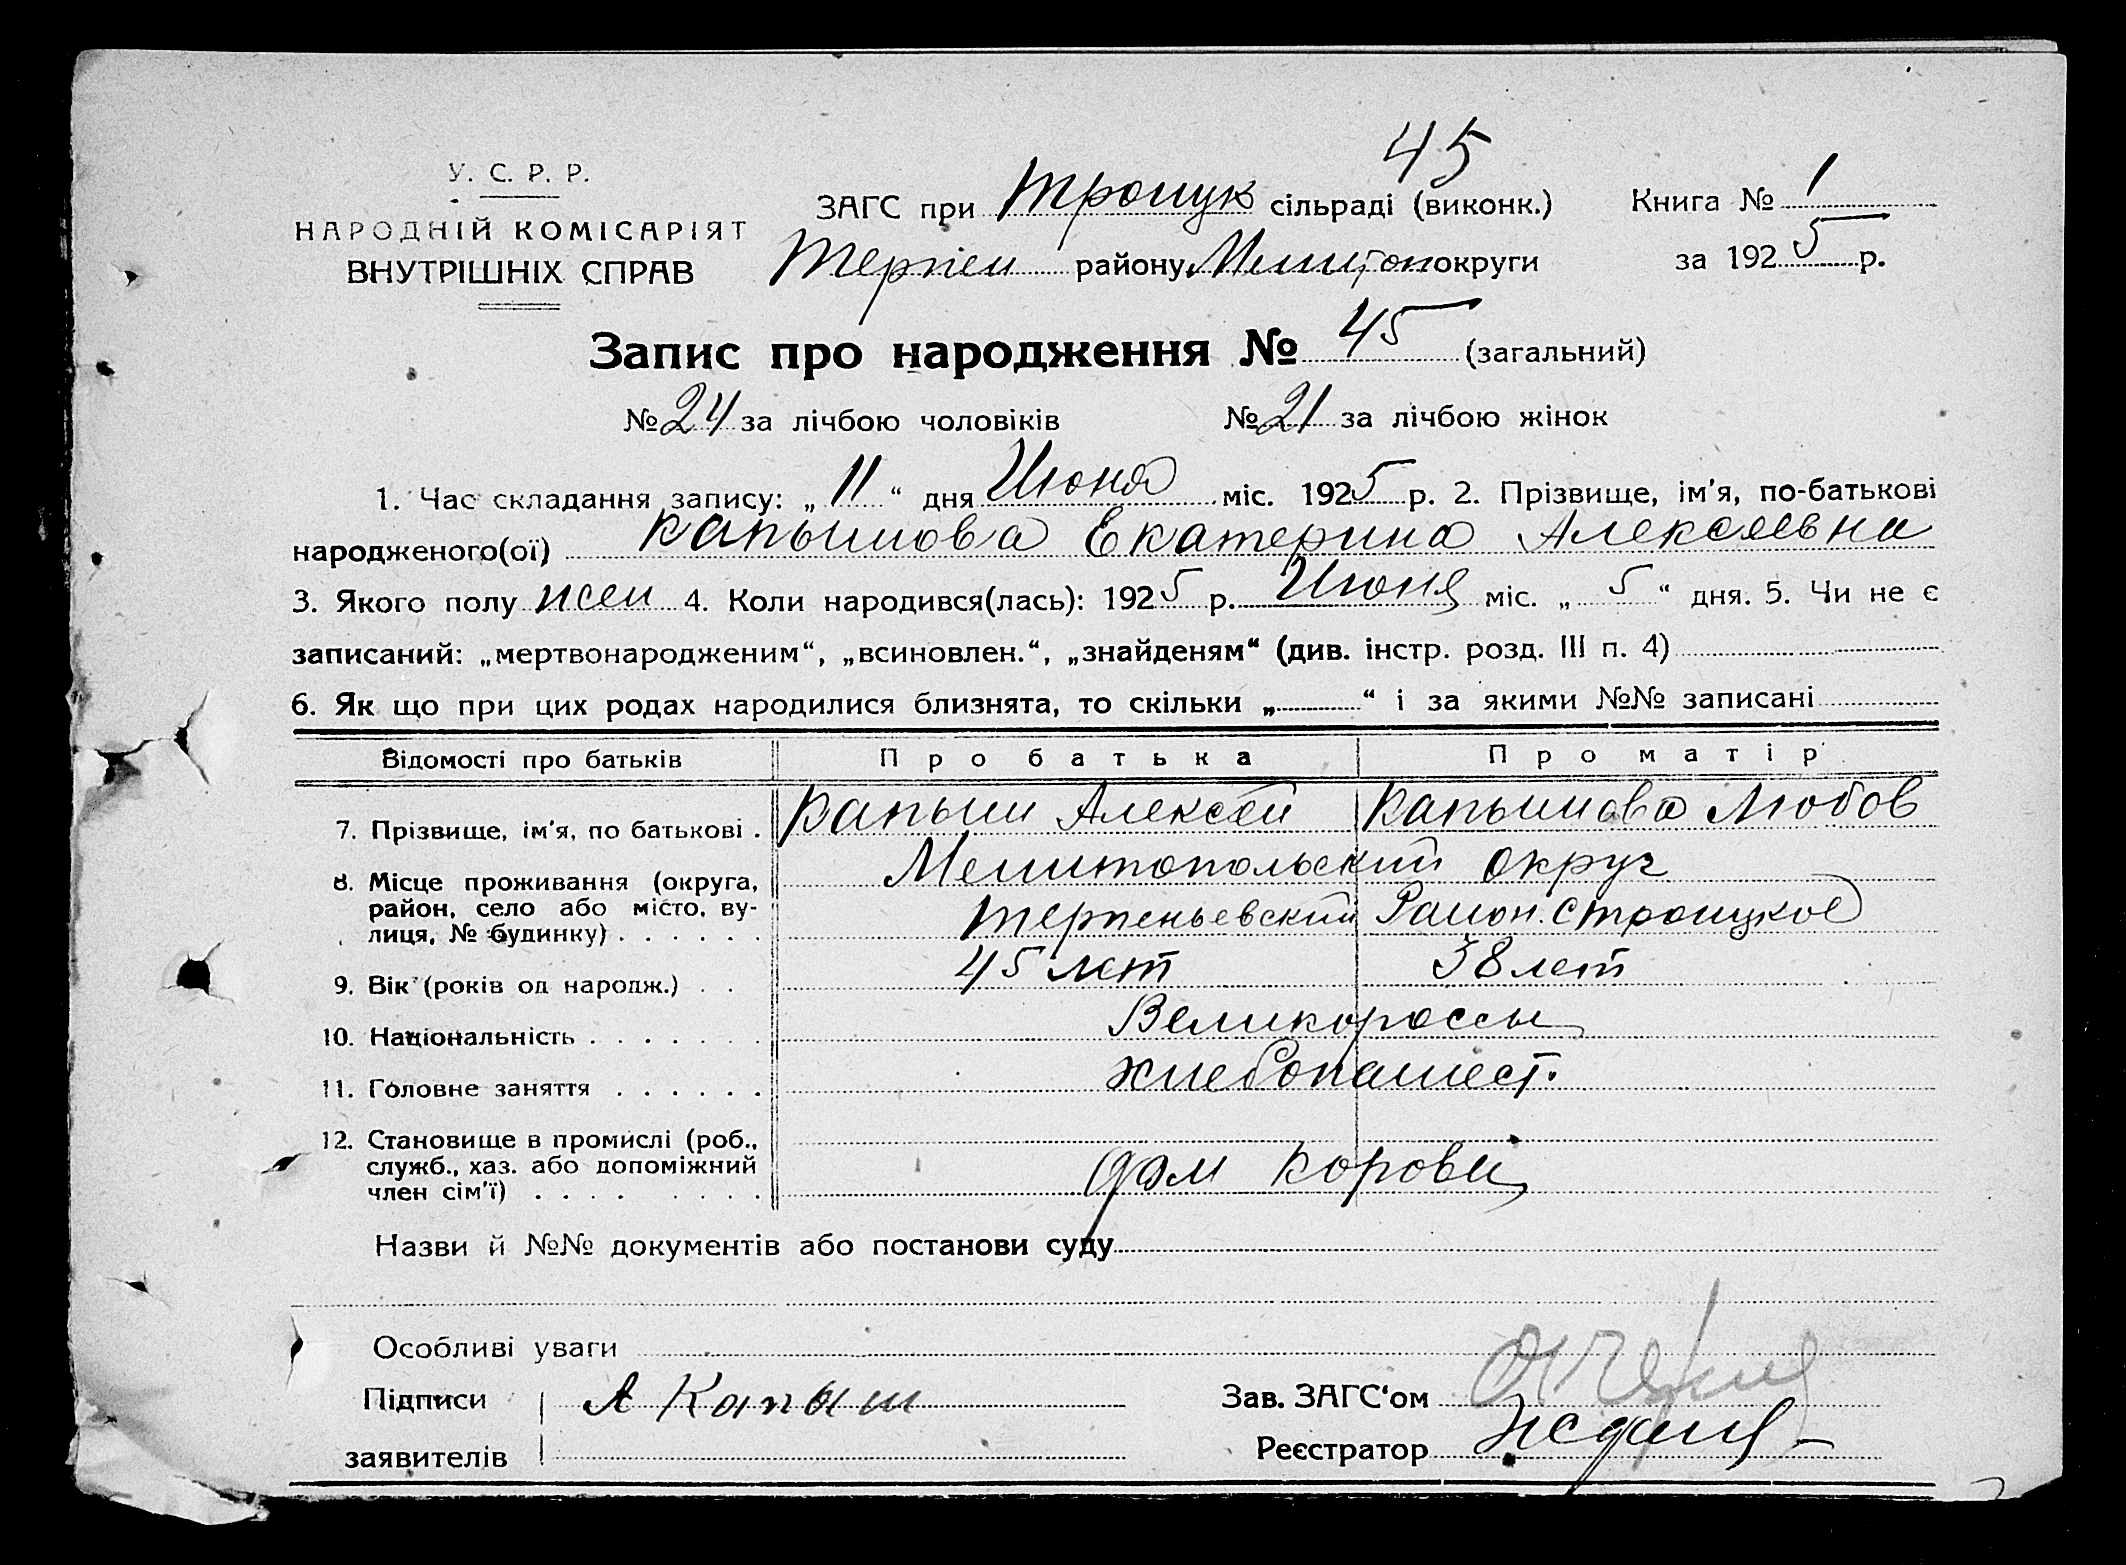 45
У. С. Р. Р.
НАРОДНІЙ КОМІСАРІЯТ
ВНУТРІШНІХ СПРАВ
ЗАГС при Троицк сільраді (виконк.)
Терпен району Мелитоп округи
Книга № 1
за 1925 р.
Запис про народження № 45 (загальний)
№ 24 за лічбою чоловіків № 21 за лічбою жінок
1. Час складання запису: „ 11 “ дня Июня міс. 1925 р. 2. Прізвище, ім'я, по-батькові
народженого(ої) Капышова Екатерина Алексеевна
3. Якого полу жен 4. Коли народився(лась): 1925 р. Июня міс. „ 5 “ дня. 5. Чи не є
записаний: „мертвонародженим“, „всиновлен.“, „знайденям“ (див. інстр. розд. III п. 4)
6. Як що при цих родах народилися близнята, то скільки „ “ і за якими №№ записані
Відомості про батьків Про батька Про матір
7. Прізвище, ім'я, по батькові . Капыш Алексей Капышова Любов
8. Місце проживання (округа, Мелитопольский округ
район, село або місто, ву-
лиця, № будинку) . . . . . . Терпеньевский Район. с Троицкое
9. Вік (років од народж.) . . 45 лет 38 лет
10. Національність . . . . . . . Великороссы
11. Головне заняття . . . . . . Хлебопашест.
12. Становище в промислі (роб.,
служб., хаз. або допоміжний
член сім'ї) . . . . . . . . дом корова
Назви й №№ документів або постанови суду
Особливі уваги
Підписи А Капыш
заявителів
Зав. ЗАГС'ом
Реєстратор